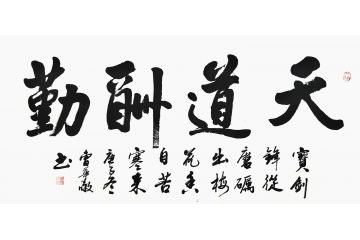 天道酬勤
寶劍
鋒從
磨礪
出梅
花香
自苦
寒來
庚子冬
書